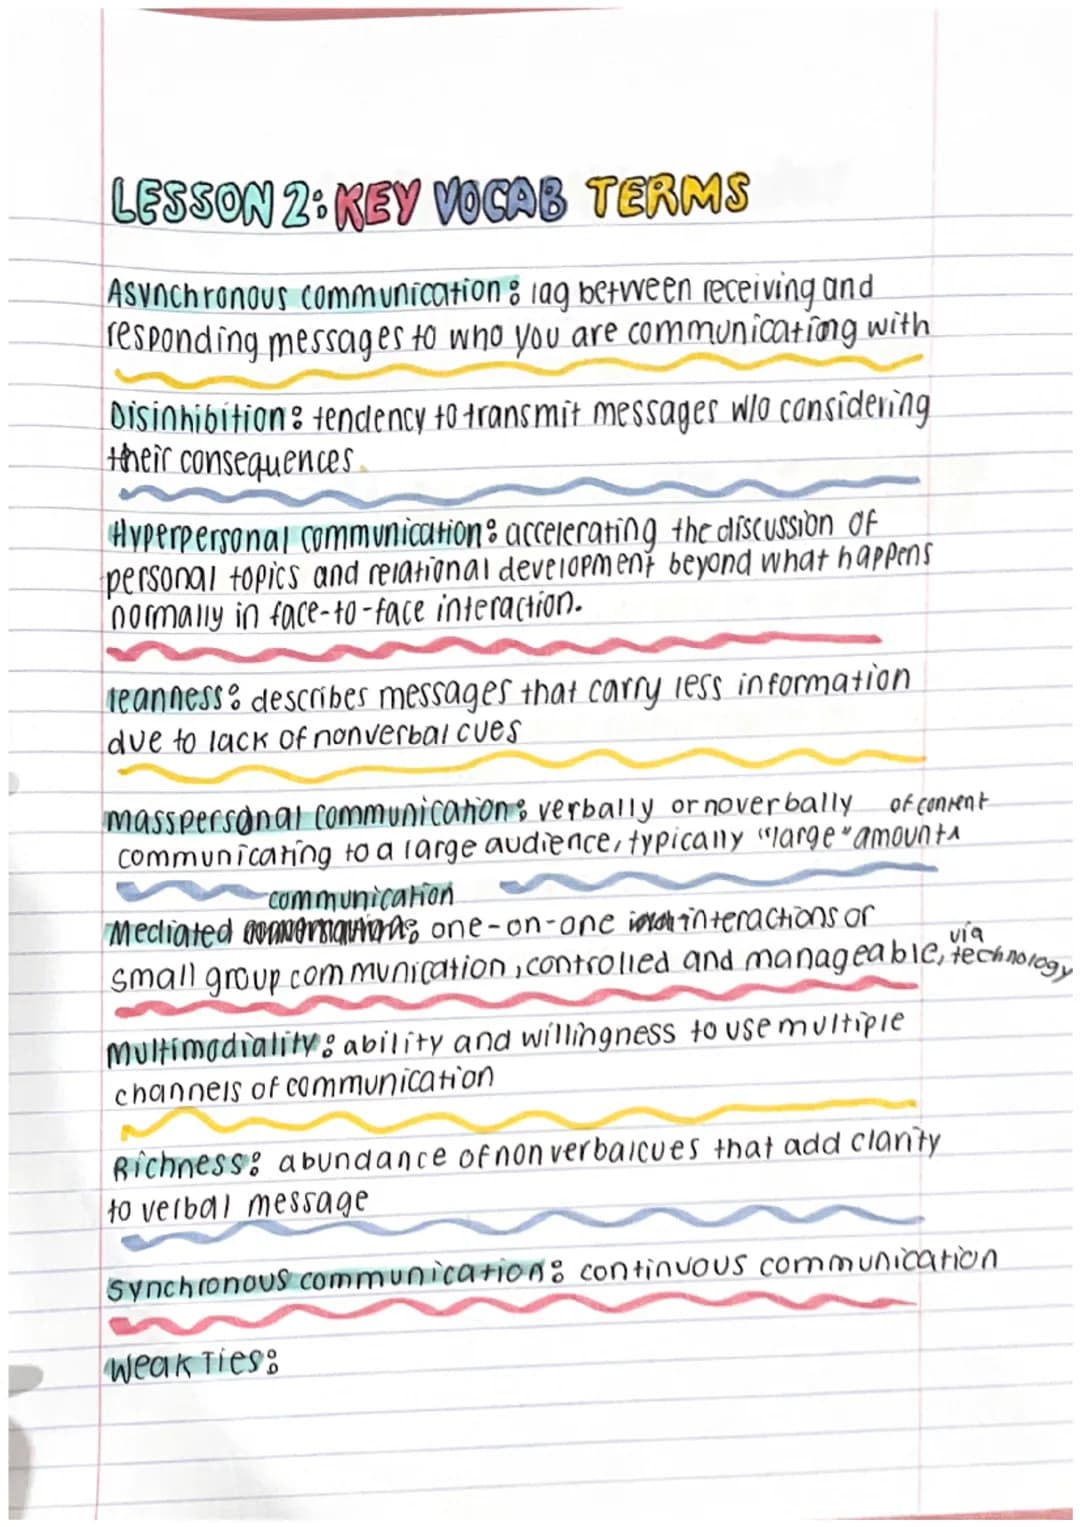 LESSON 2: KEY VOCAB TERMS
Asynchronous communication: lag between receiving and
responding messages to who you are communicationg with
Disinhibition: tendency to transmit messages w/o considering
their consequences.
Hyperpersonal communication: accelerating the discussion of
personal topics and relational development beyond what happens
normally in face-to-face interaction.
leanness: describes messages that carry less information
due to lack of nonverbal cues
masspersonal communication: verbally or noverbally
communicating to a large audience, typically "large" amounts of content
Mediated communication: one-on-one interactions or
small group communication, controlled and manageable, via technology
Multimodiality: ability and willingness to use multiple
channels of communication
Richness: abundance of nonverbal cues that add clarity
to verbal message
synchronous communication: continuous communication
Weak Ties: